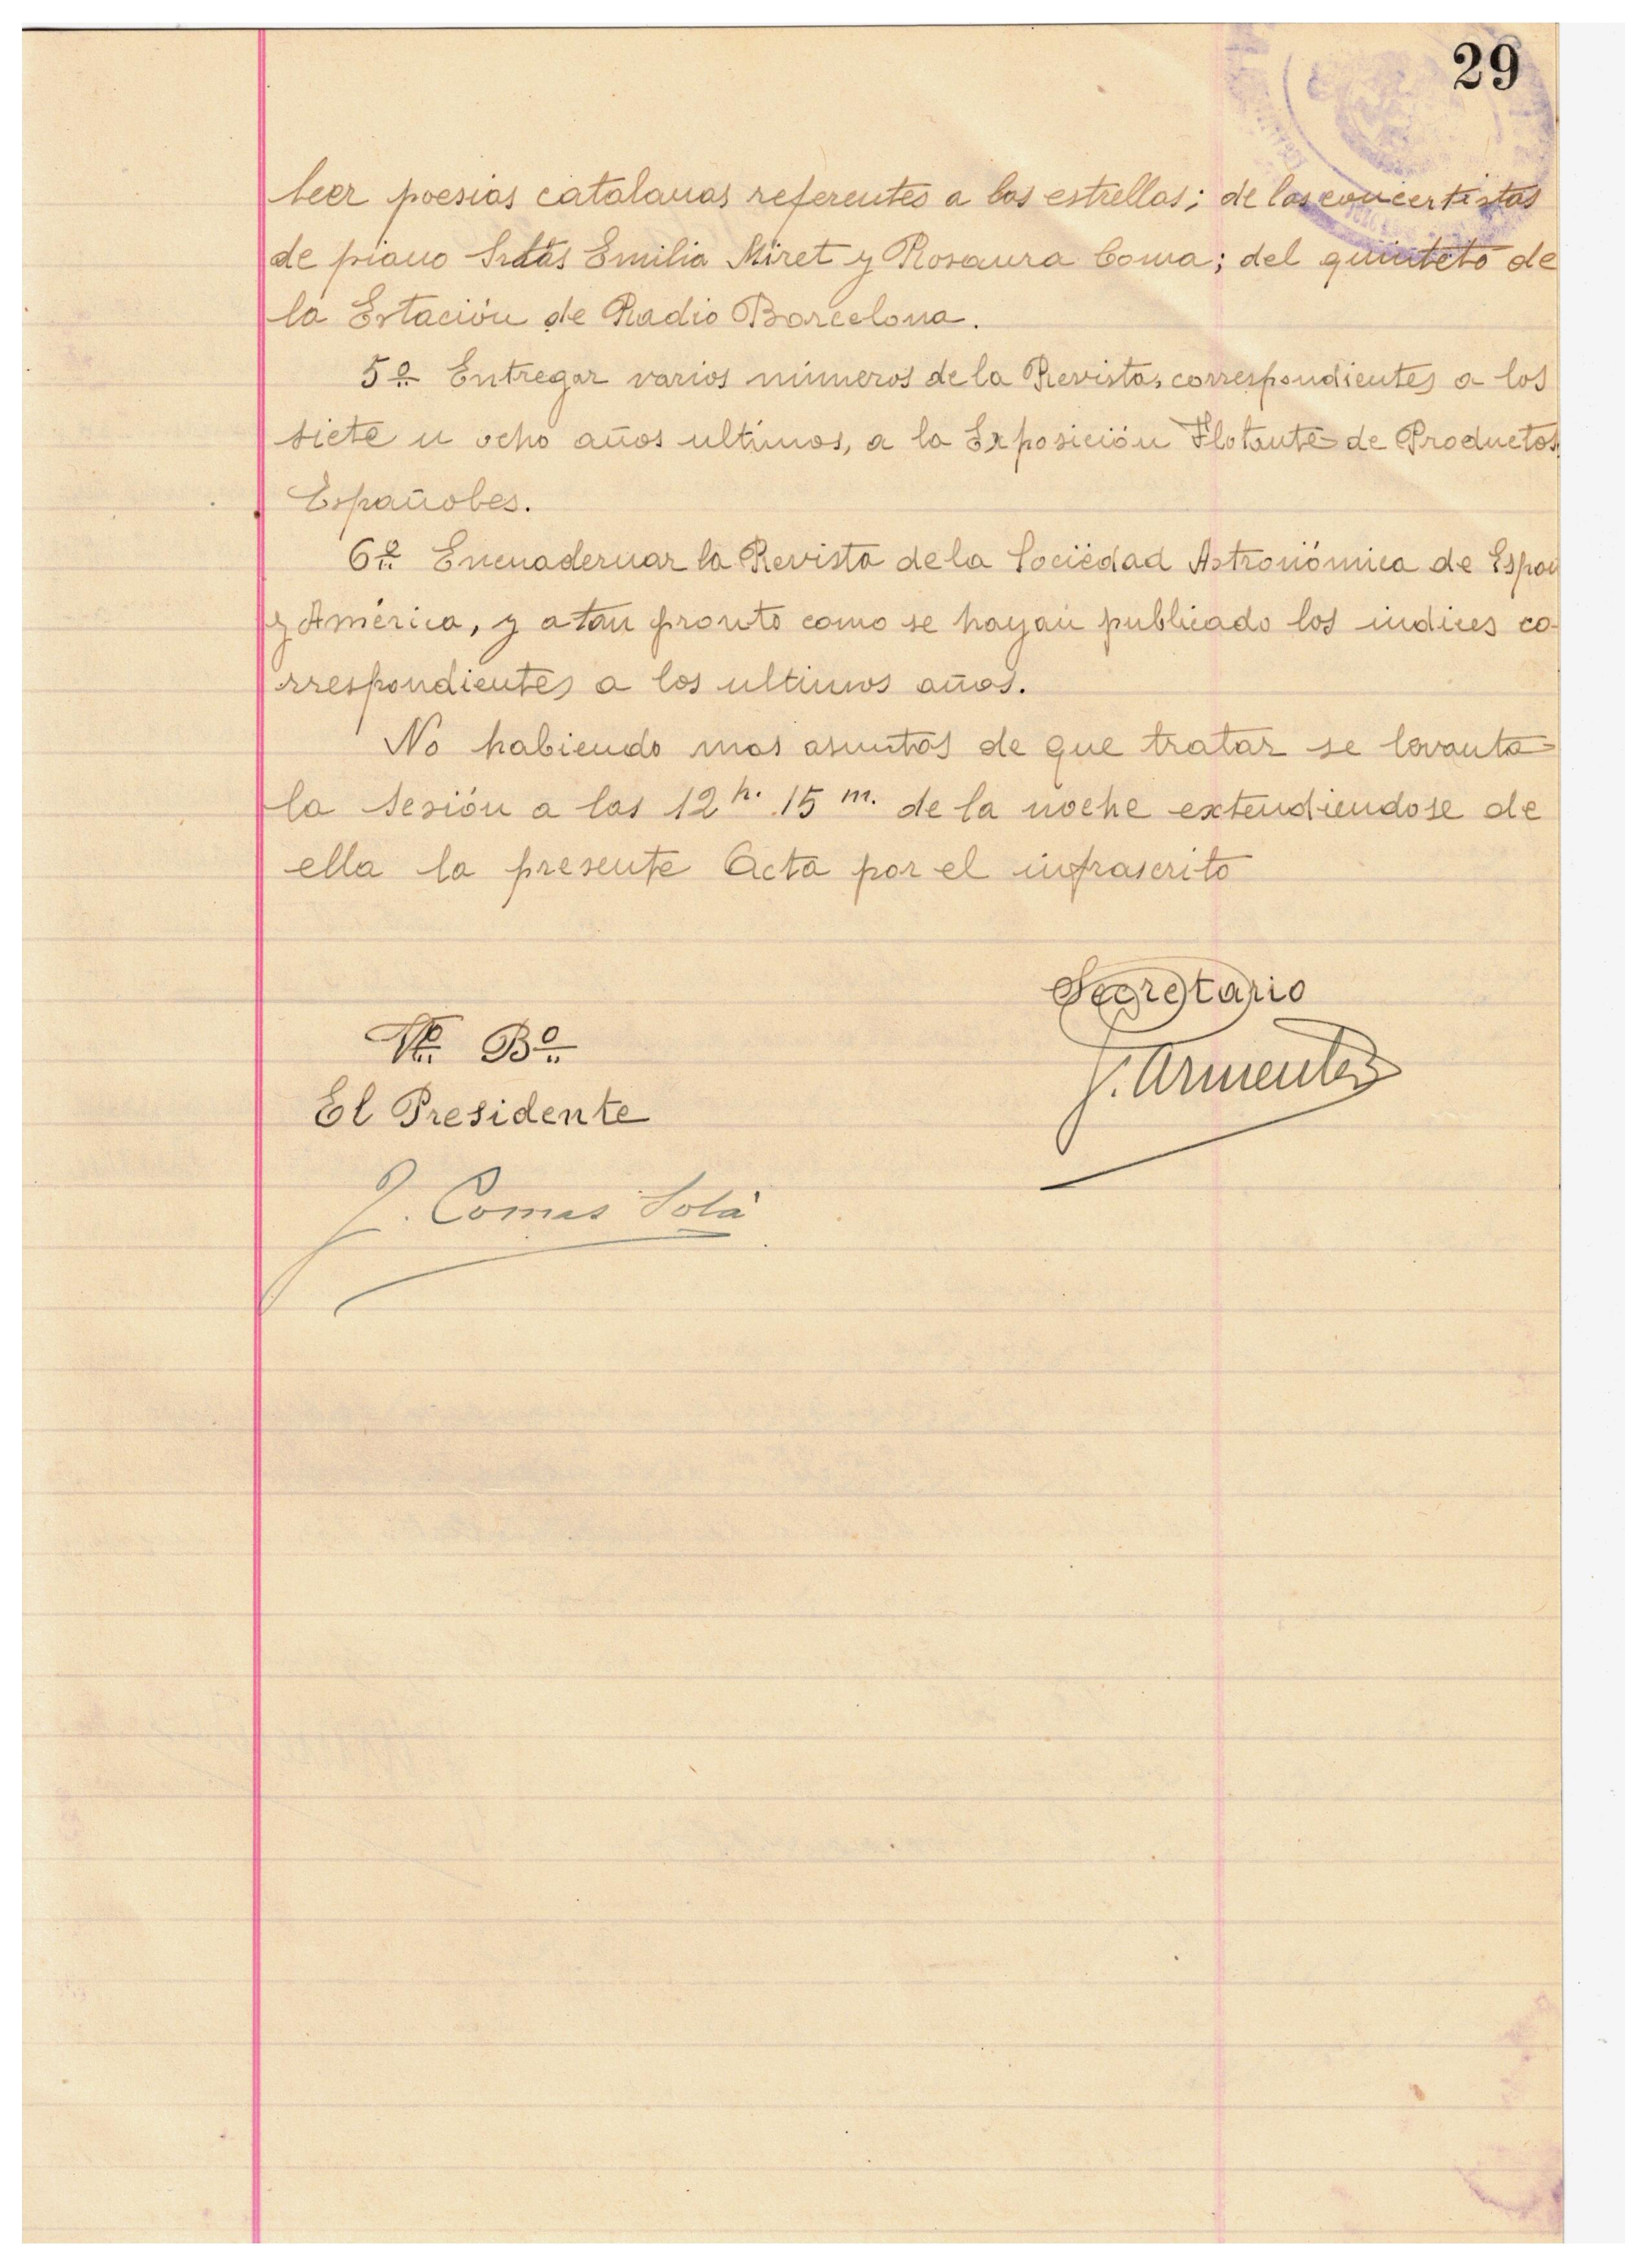 29
leer poesias catalanas referentes a las estrellas; de las concertistas
de piano Srtas Emilia Miret y Rosaura Coma; del quinteto de
la Estación de Radio Barcelona.
5º Entregar varios números de la Revista, correspondientes a los
siete u ocho años ultimos, a la Exposición Flotante de Productos
Españoles.
6º Encuadernar la Revista de la Sociedad Astronómica de España
y América, y a tan pronto como se hayan publicado los indices co-
rrespondientes a los ultimos años.
No habiendo mas asuntos de que tratar se levanta
la sesión a las 12 h. 15 m. de la noche extendiendose de
ella la presente Acta por el infrascrito
Secretario
J. Armenter
Vº Bº
El Presidente
J. Comas Solá